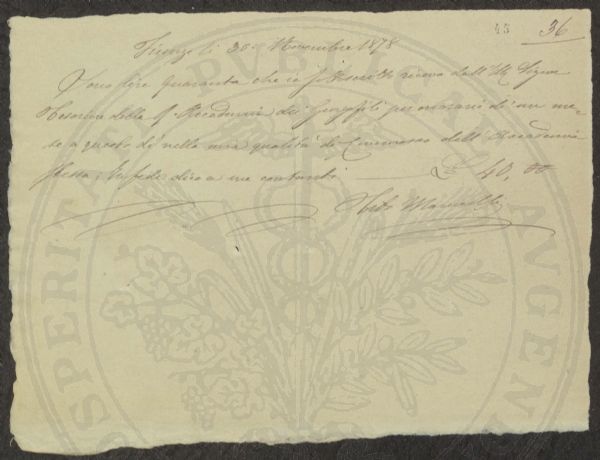 43 36
Firenze li 30. Novembre 1878
Sono lire quaranta che io sottoscritto ricevo dall'Ill. Signor
Tesoriere della R. Accademia dei Georgofili per onorario di un me-
se a questo dì nella mia qualità di Commesso dell'Accademia
stessa, in fede dico a me contanti — £ 40, 00
PROSPERITATI PUBLICAE AUGENDAE